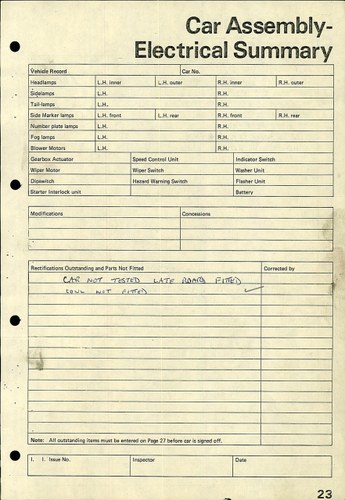 Car Assembly-
Electrical Summary
Vehicle Record Car No.
Headlamps L.H. inner L.H. outer R.H. inner R.H. outer
Sidelamps L.H. R.H.
Tail-lamps L.H. R.H.
Side Marker lamps L.H. front L.H. rear R.H. front R.H. rear
Number plate lamps L.H. R.H.
Fog lamps L.H. R.H.
Blower Motors L.H. R.H.
Gearbox Actuator Speed Control Unit Indicator Switch
Wiper Motor Wiper Switch Washer Unit
Dipswitch Hazard Warning Switch Flasher Unit
Starter Interlock unit Battery
Modifications Concessions
Rectifications Outstanding and Parts Not Fitted Corrected by
CAR NOT TESTED LATE BOARD FITTED
NOT FITTED
Note: All outstanding items must be entered on Page 27 before car is signed off.
I. I. Issue No. Inspector Date
23